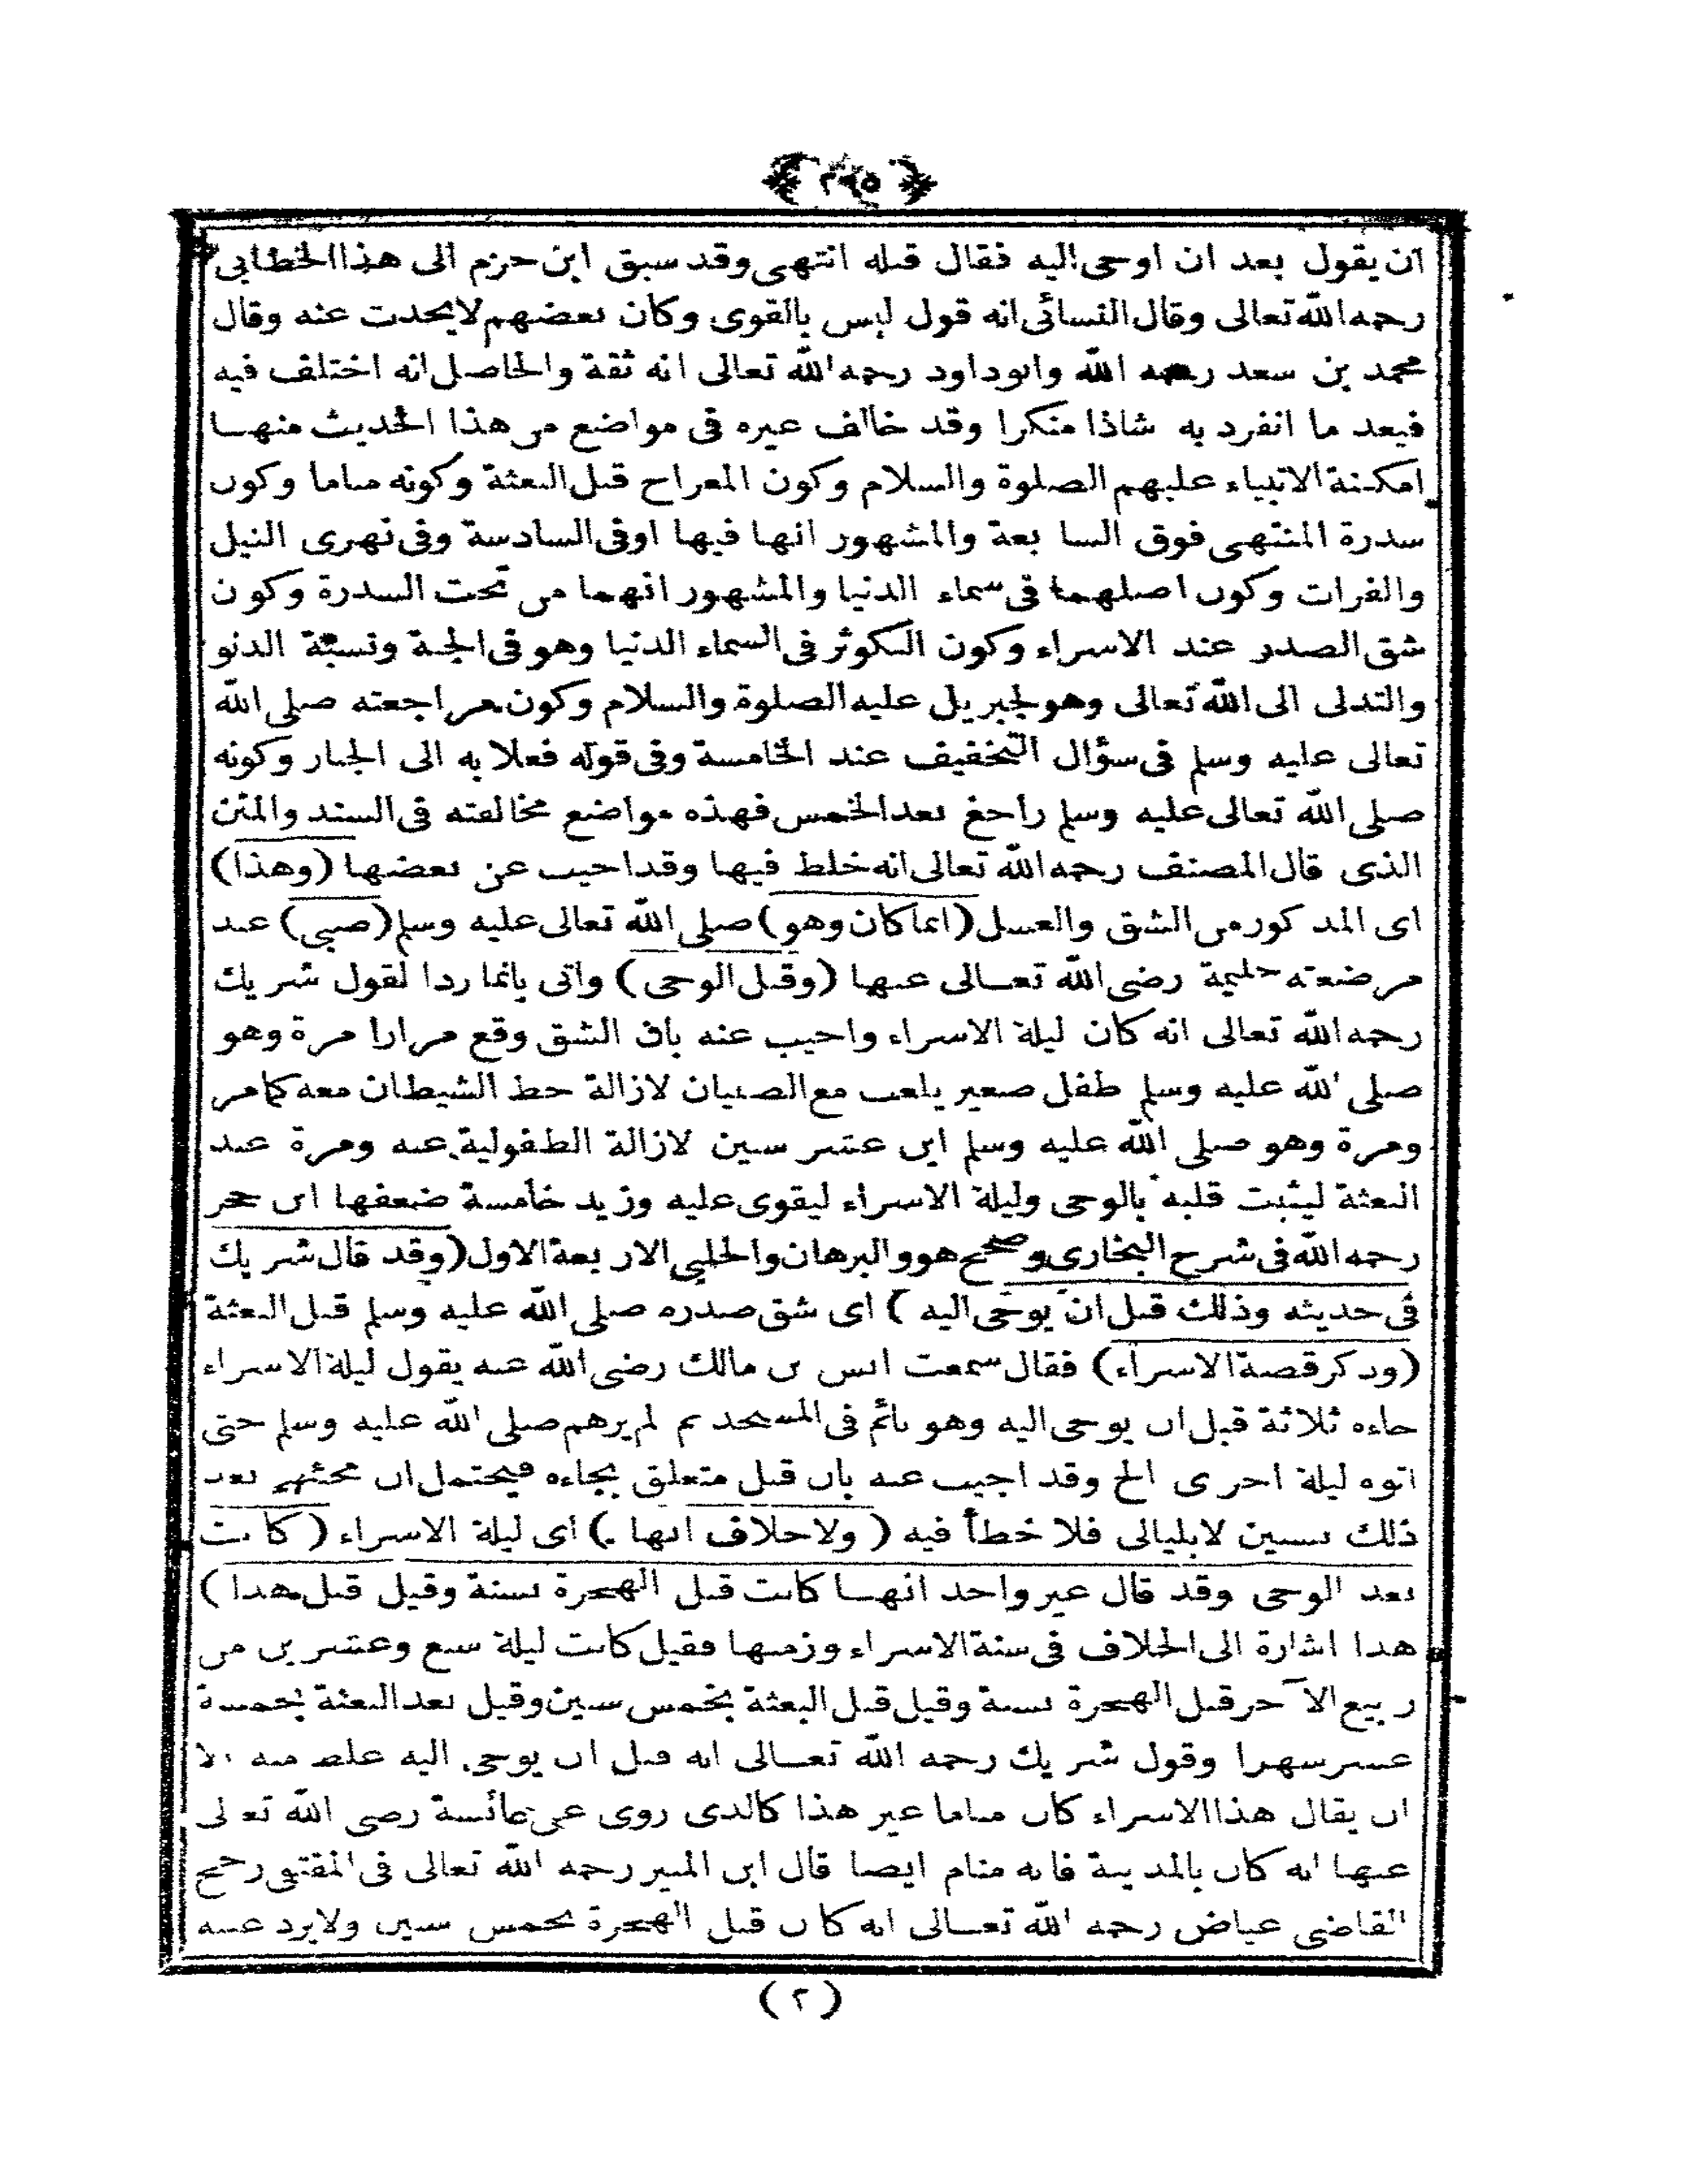 ﴿ ٢٩٥ ﴾
ان يقول بعد ان اوحى اليه فقال قبله انتهى وقد سبق ابن حزم الى هذا الخطابي
رحمه الله تعالى وقال النسائى انه قول ليس بالقوى وكان بعضهم لايحدث عنه وقال
محمد بن سعد رحمه الله وابوداود رحمه الله تعالى انه ثقة والحاصل انه اختلف فيه
فيعد ما انفرد به شاذا منكرا وقد خالف غيره فى مواضع من هذا الحديث منها
امكنة الانبياء عليهم الصلوة والسلام وكون المعراج قبل البعثة وكونه مناما وكون
سدرة المنتهى فوق السا بعة والمشهور انها فيها اوفى السادسة وفى نهرى النيل
والفرات وكون اصلهما فى سماء الدنيا والمشهور انهما من تحت السدرة وكون
شق الصدر عند الاسراء وكون الكوثر فى السماء الدنيا وهو فى الجنة ونسبة الدنو
والتدلى الى الله تعالى وهو لجبريل عليه الصلوة والسلام وكون مراجعته صلى الله
تعالى عليه وسلم فى سؤال التخفيف عند الخامسة وفى قوله فعلا به الى الجبار وكونه
صلى الله تعالى عليه وسلم راجع بعد الخمس فهذه مواضع مخالفته فى السند والمتن
الذى قال المصنف رحمه الله تعالى انه خلط فيها وقد اجيب عن بعضها (وهذا)
اى المذ كور من الشق والغسل (انما كان وهو) صلى الله تعالى عليه وسلم (صبى) عند
مرضعته حليمة رضى الله تعالى عنها (وقبل الوحى) واتى بانما ردا لقول شريك
رحمه الله تعالى انه كان ليلة الاسراء واجيب عنه بان الشق وقع مرارا مرة وهو
صلى الله عليه وسلم طفل صغير يلعب مع الصبيان لازالة حظ الشيطان معه كما مر
ومرة وهو صلى الله عليه وسلم ابن عشر سنين لازالة الطفولية عنه ومرة عند
البعثة ليثبت قلبه بالوحى وليلة الاسراء ليقوى عليه وزيد خامسة ضعفها ابن حجر
رحمه الله فى شرح البخارى وصحح هو والبرهان والحلبى الار بعة الاول (وقد قال شريك
فى حديثه وذلك قبل ان يوحى اليه ) اى شق صدره صلى الله عليه وسلم قبل البعثة
(وذكر قصة الاسراء) فقال سمعت انس بن مالك رضى الله عنه يقول ليلة الاسراء
جاءه ثلاثة قبل ان يوحى اليه وهو نائم فى المسجد ثم لم يرهم صلى الله عليه وسلم حتى
اتوه ليلة اخرى الخ وقد اجيب عنه بان قبل متعلق بجاءه فيحتمل ان مجئهم بعد
ذلك بسنين لابليالى فلا خطأ فيه ( ولاخلاف انها ) اى ليلة الاسراء ( كانت
بعد الوحى وقد قال غير واحد انها كانت قبل الهجرة بسنة وقيل قبل هذا )
هذا اشارة الى الخلاف فى سنة الاسراء وزمنها فقيل كانت ليلة سبع وعشرين من
ربيع الآخر قبل الهجرة بسنة وقيل قبل البعثة بخمس سنين وقيل بعد البعثة بخمسة
عشر شهرا وقول شريك رحمه الله تعالى انه قبل ان يوحى اليه غلط منه الا
ان يقال هذا الاسراء كان مناما غير هذا كالذى روى عن عائشة رضى الله تعالى
عنها انه كان بالمدينة فانه منام ايضا قال ابن المنير رحمه الله تعالى فى المقتفى رجح
القاضى عياض رحمه الله تعالى انه كان قبل الهجرة بخمس سنين ولايرد عنه
( ٢ )